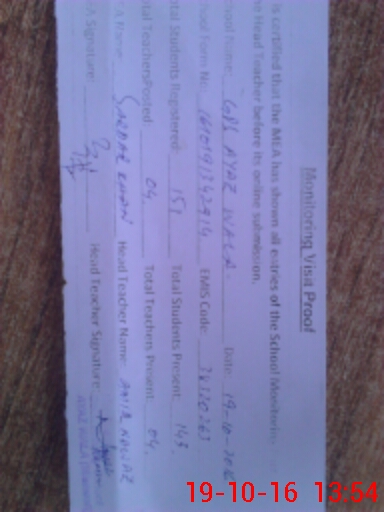 Monitoring Visit Proof
is certified that the MEA has shown all entries of the School Monitoring
he Head Teacher before its online submission.
hool Name: GPS AYAZ WALA Date: 19-10-
hool Form No: EMIS Code: 38320263
otal Students Registered: 151 Total Students Present: 143
tal Teachers Posted: 04 Total Teachers Present: 04
A Name: SARDAR KHAN Head Teacher Name: AMIR NAWAZ
A Signature: Head Teacher Signature:
19-10-16 13:54